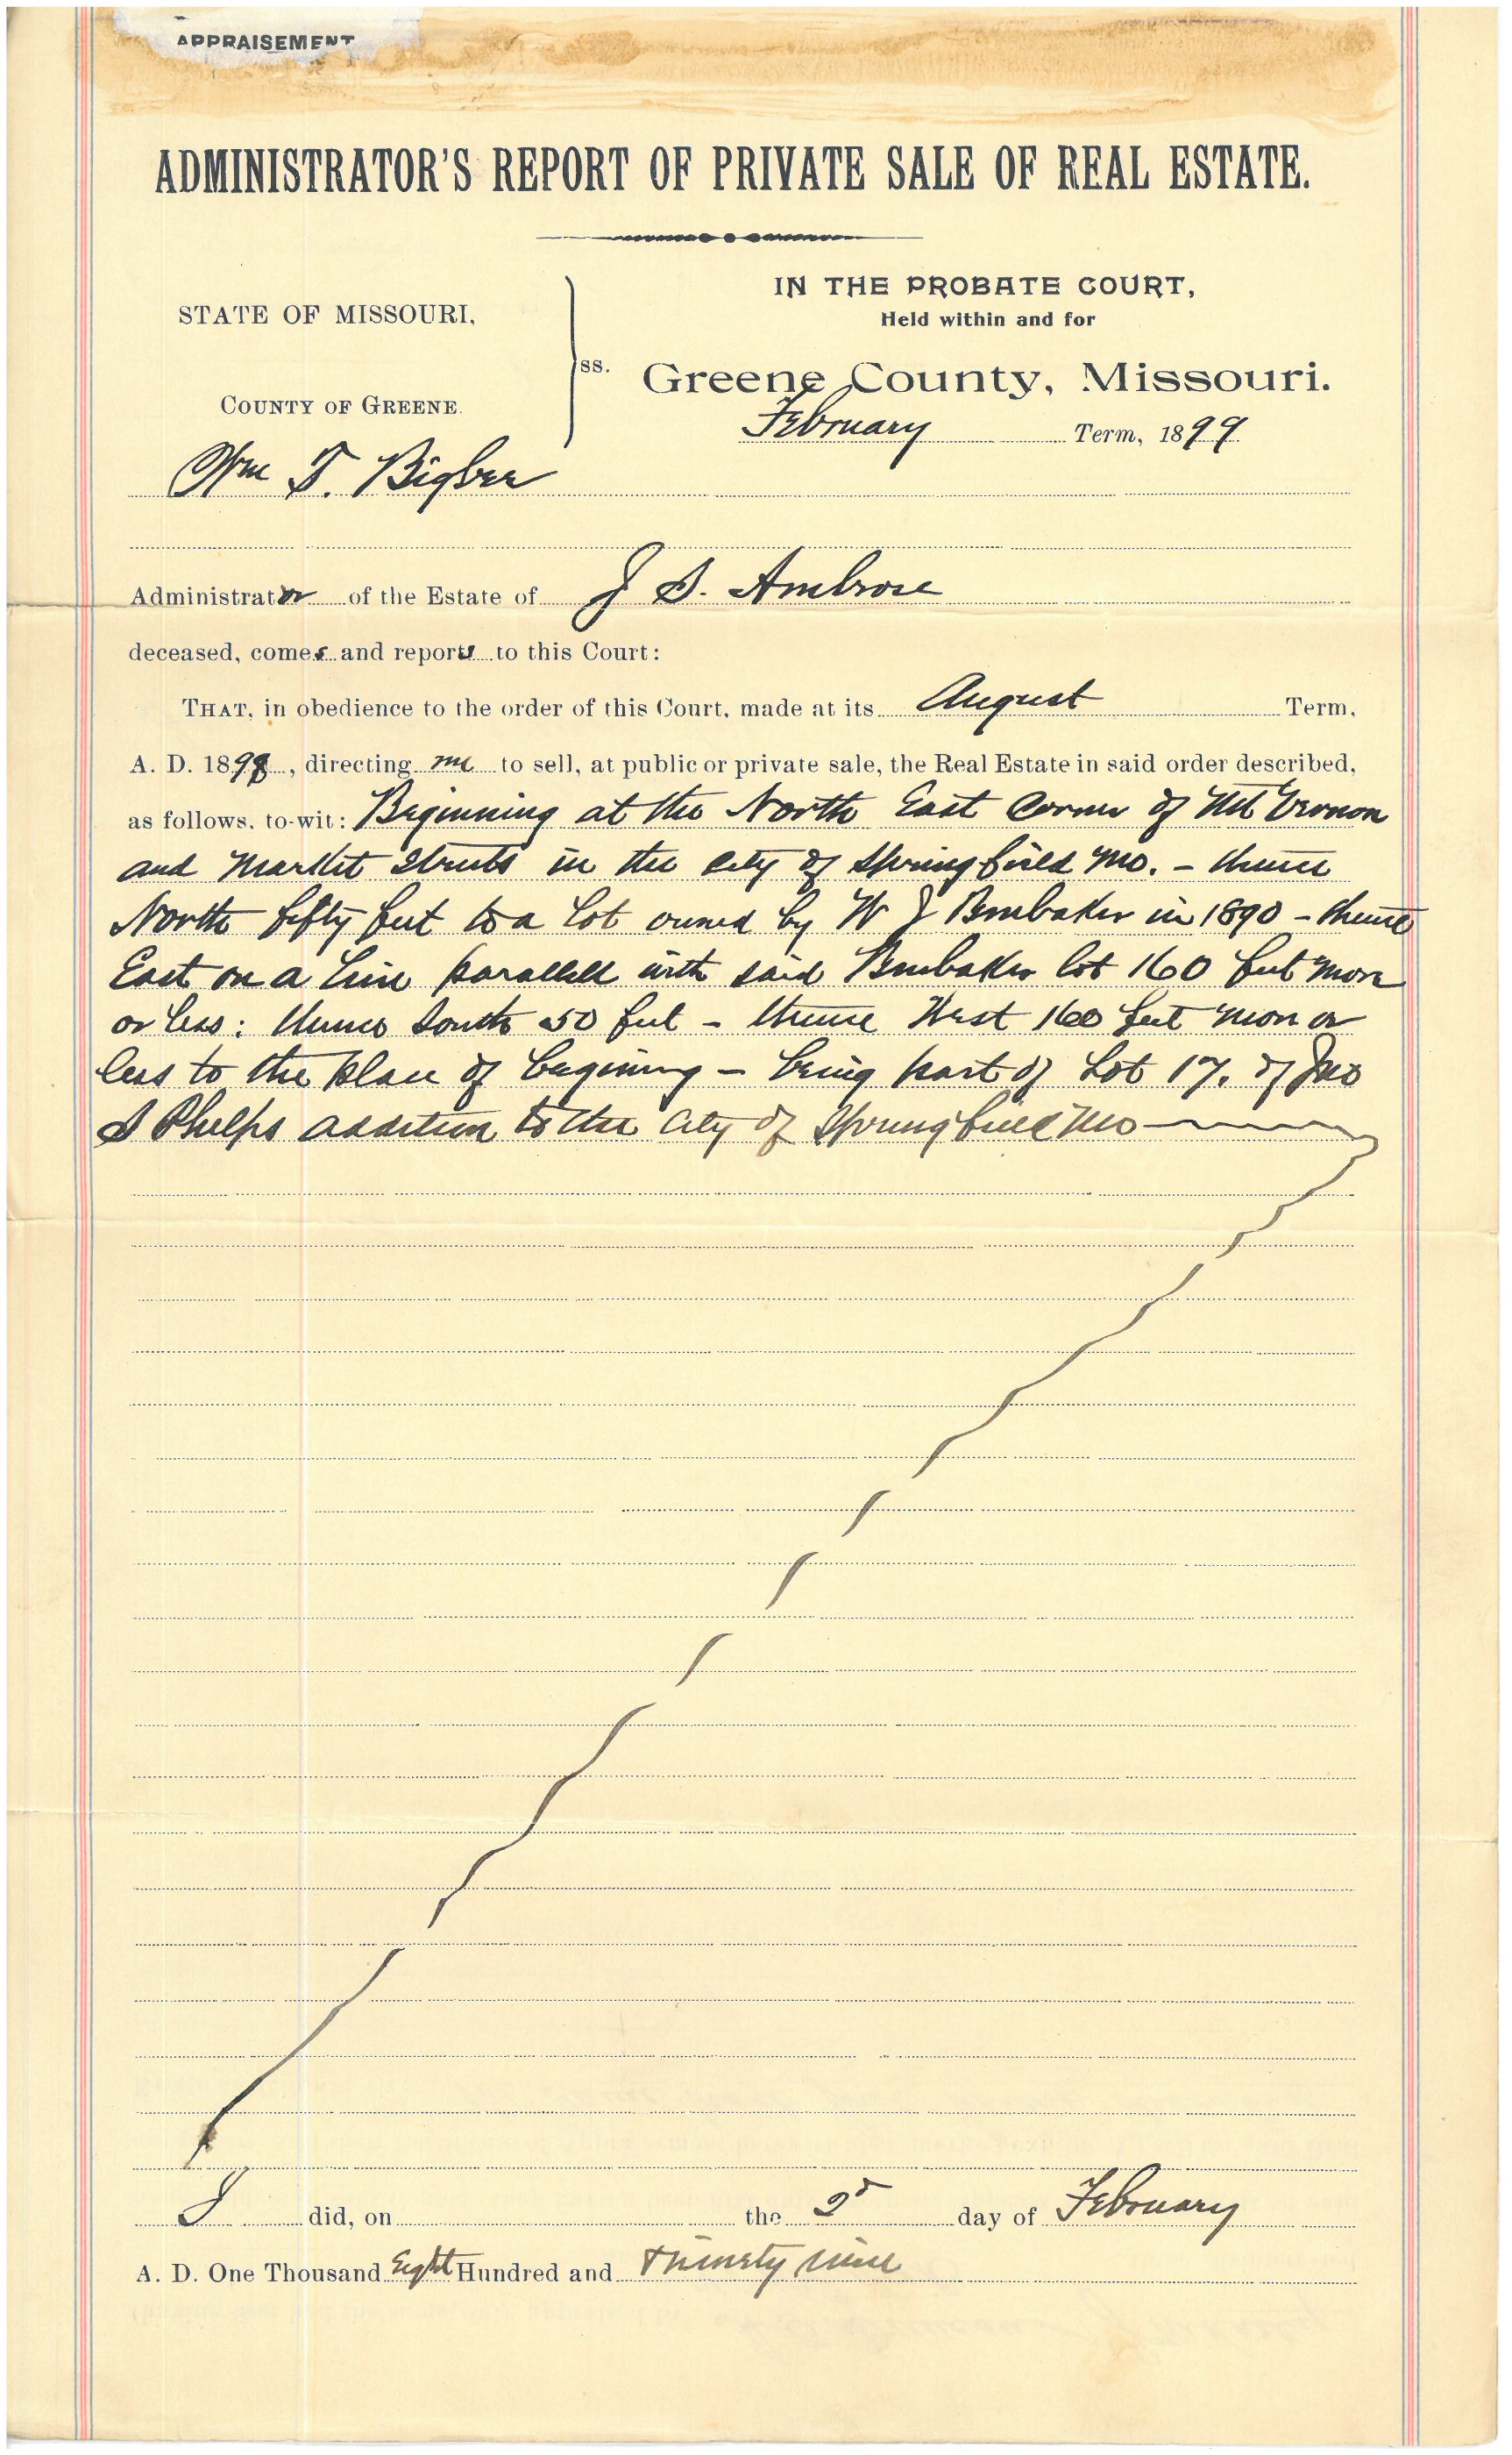 APPRAISEMENT
ADMINISTRATOR'S REPORT OF PRIVATE SALE OF REAL ESTATE.
STATE OF MISSOURI,
COUNTY OF GREENE.
ss.
IN THE PROBATE COURT,
Held within and for
Greene County, Missouri.
February Term, 1899
Wm T. Bigbee
Administrator of the Estate of J S. Ambrose
deceased, comes and reports to this Court:
THAT, in obedience to the order of this Court, made at its August Term,
A. D. 1898, directing me to sell, at public or private sale, the Real Estate in said order described,
as follows, to-wit: Beginning at the North East Corner of Mt Vernon
and Market Streets in the City of Springfield Mo. - thence
North fifty feet to a lot owned by W J Brubaker in 1890 - thence
East on a line parallell with said Brubaker lot 160 feet more
or less: thence South 50 feet - thence West 160 feet more or
less to the place of begining - being part of Lot 17. of Jno
S Phelps addition to the City of Springfield Mo
I did, on the 2d day of February
A. D. One Thousand Eight Hundred and Ninety nine